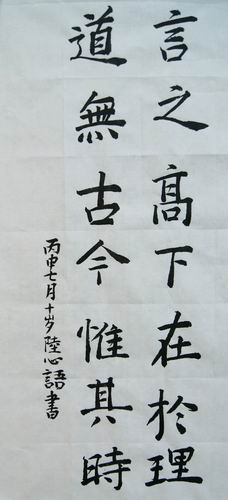 言之高下在於理
道無古今惟其時
丙申七月十岁陸心語書